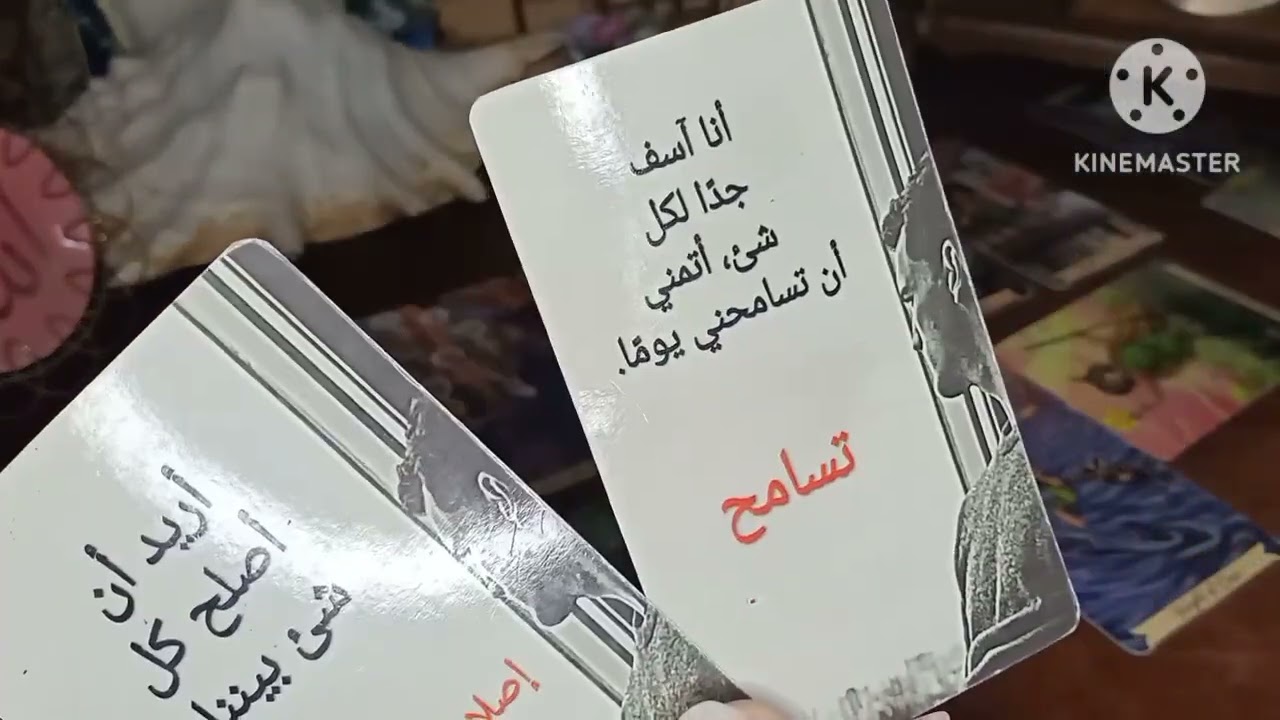 أنا آسف
جدًا لكل
شئ، أتمني
أن تسامحني يومًا.
تسامح
أريد أن
أصلح كل
شئ بيننا
إصلا
KINEMASTER